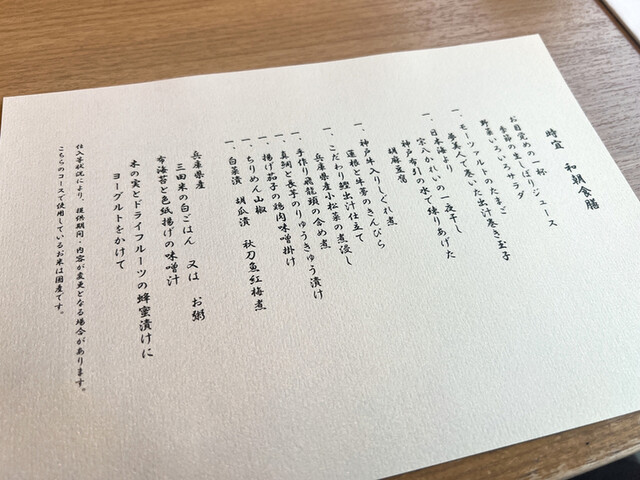 時宜　和朝食膳
お目覚めの一杯
季節の生しぼりジュース
野菜いろいろサラダ
一、モーツァルトのたまご
夢美人で巻いた出汁巻き玉子
一、日本海より
宗八かれいの一夜干し
神戸布引の水で練りあげた
胡麻豆腐
一、神戸牛入りしぐれ煮
蓮根と牛蒡のきんぴら
一、こだわり鰹出汁仕立て
兵庫県産小松菜の煮浸し
一、手作り飛龍頭の含め煮
一、真鯛と長芋のりゅうきゅう漬け
一、揚げ茄子の鶏肉味噌掛け
一、ちりめん山椒
一、白菜漬　胡瓜漬　秋刀魚紅梅煮
兵庫県産
三田米の白ごはん　又は　お粥
布海苔と色紙揚げの味噌汁
木の実とドライフルーツの蜂蜜漬けに
ヨーグルトをかけて
仕入等状況により、提供期間・内容が変更となる場合があります。
こちらのコースで使用しているお米は国産です。